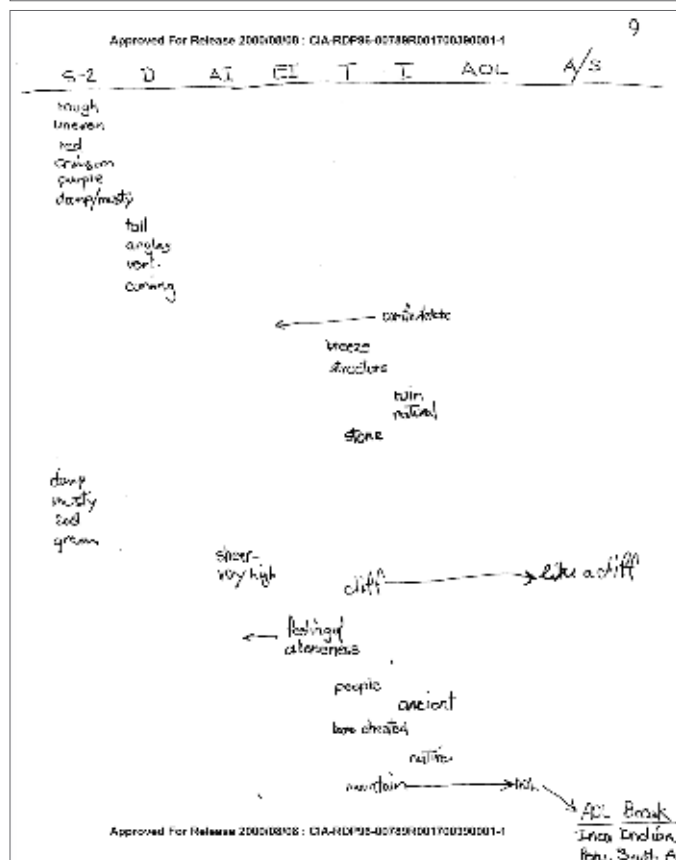 9
Approved For Release 2000/08/08 : CIA-RDP96-00789R001700390001-1
S-2 D AI EI T I AOL A/S
rough
uneven
red
crimson
purple
damp/musty
tall
angles
vert.
curving
breeze
structure
ruin
natural
stone
damp
musty
red
green
sheer-
very high
cliff like a cliff
feeling of
aloneness
people
ancient
bare chested
native
mountain
AOL Break
Inca Indian,
Peru, South A
Approved For Release 2000/08/08 : CIA-RDP96-00789R001700390001-1